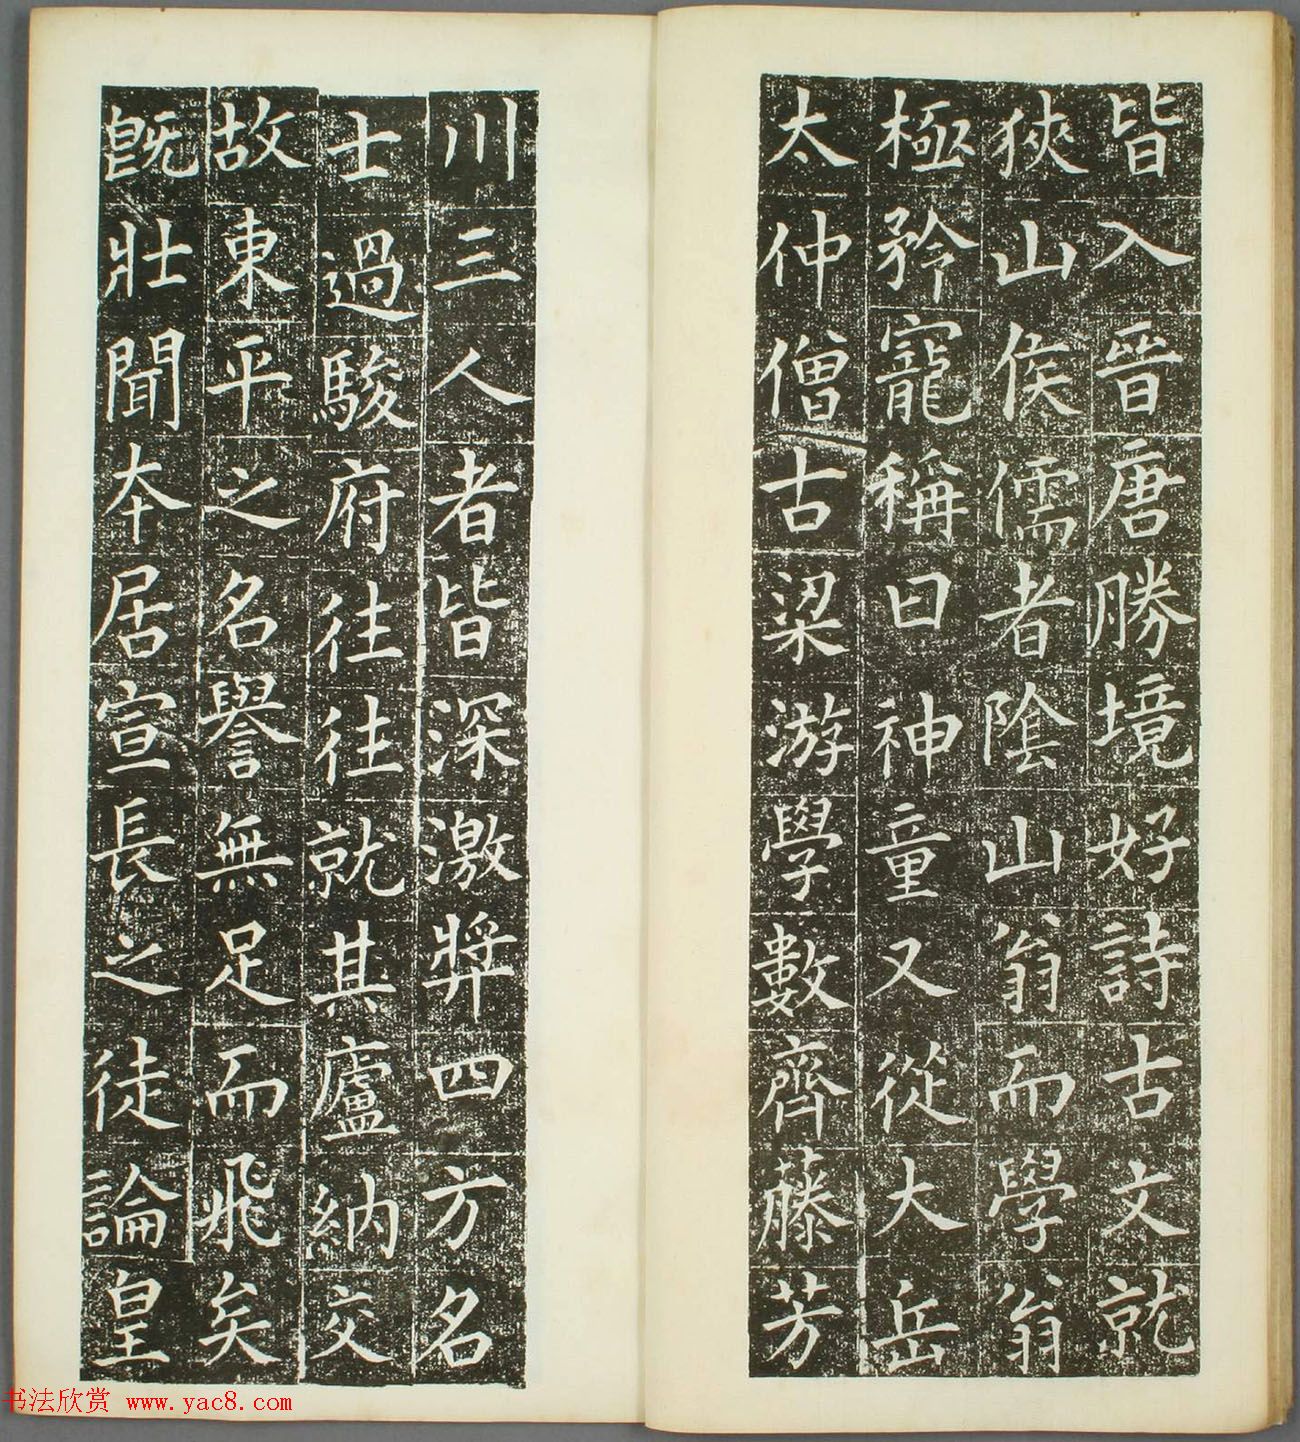 皆入晉唐勝境好詩古文就
狹山侯儒者陰山翁而學翁
極矜寵稱曰神童又從大岳
太仲僧古梁游學數齊藤芳
川三人者皆深激奬四方名
士過駿府往往就其廬納交
故東平之名譽無足而飛矣
既壯聞本居宣長之徒論皇
书法欣赏 www.yac8.com